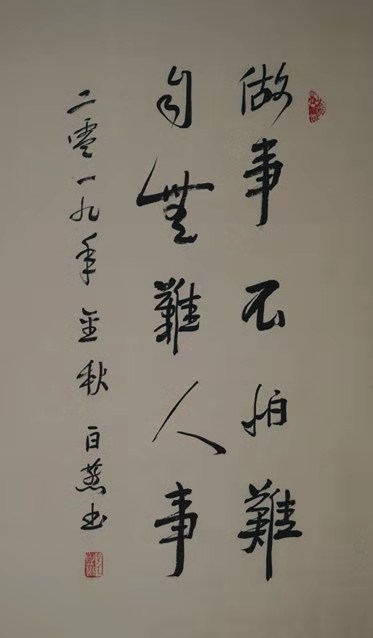 做事不怕難
自無難人事
二零一九年金秋百燕書